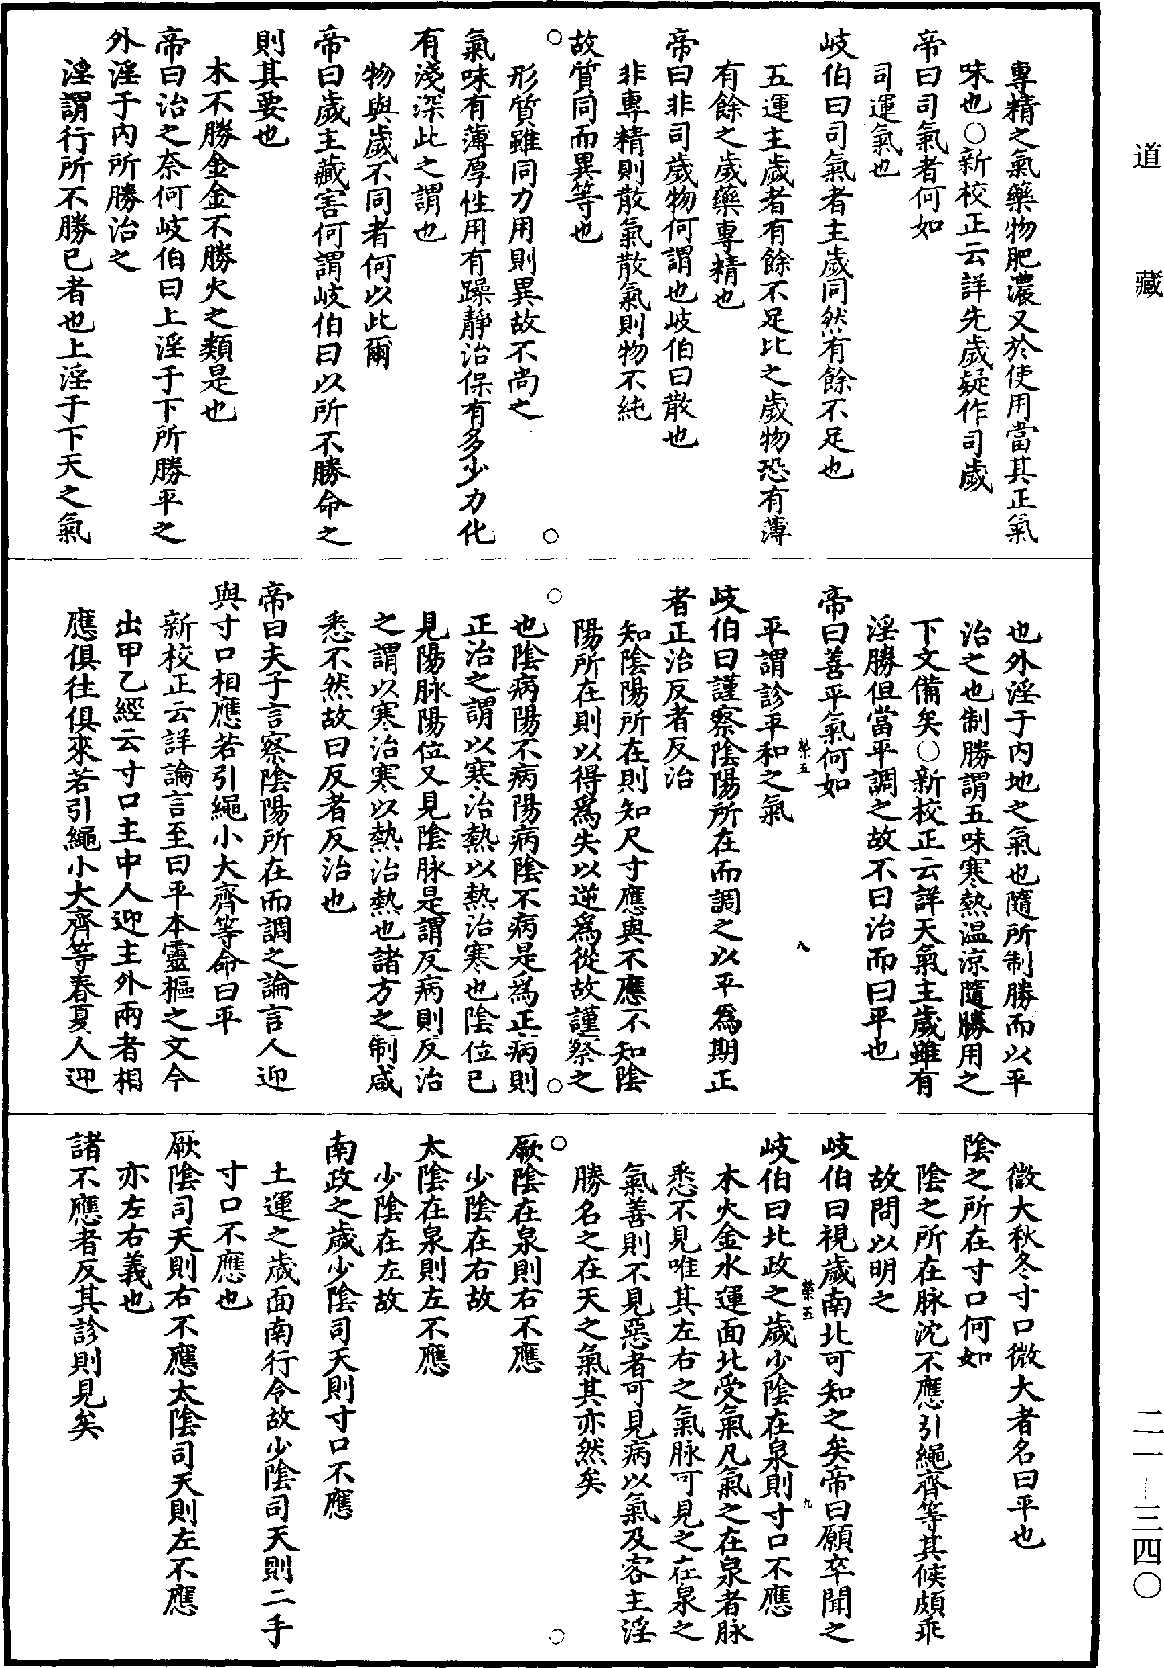 道藏
專精之氣藥物肥濃又於使用當其正氣
味也○新校正云詳先歲疑作司歲
帝曰司氣者何如
司運氣也
岐伯曰司氣者主歲同然有餘不足也
五運主歲者有餘不足比之歲物恐有薄
有餘之歲藥專精也
帝曰非司歲物何謂也岐伯曰散也
非專精則散氣散氣則物不純
故質同而異等也
形質雖同力用則異故不尚之
氣味有薄厚性用有躁靜治保有多少力化
有淺深此之謂也
物與歲不同者何以此爾
帝曰歲主藏害何謂岐伯曰以所不勝命之
則其要也
木不勝金金不勝火之類是也
帝曰治之奈何岐伯曰上淫于下所勝平之
外淫于內所勝治之
淫謂行所不勝已者也上淫于下天之氣
也外淫于內地之氣也隨所制勝而以平
治之也制勝謂五味寒熱温涼隨勝用之
下文備矣○新校正云詳天氣主歲雖有
淫勝但當平調之故不曰治而曰平也
帝曰善平氣何如
平謂診平和之氣
岐伯曰謹察陰陽所在而調之以平爲期正
者正治反者反治
知陰陽所在則知尺寸應與不應不知陰
陽所在則以得爲失以逆爲從故謹察之
也陰病陽不病陽病陰不病是爲正病則
正治之謂以寒治熱以熱治寒也陰位已
見陽脉陽位又見陰脉是謂反病則反治
之謂以寒治寒以熱治熱也諸方之制咸
悉不然故曰反者反治也
帝曰夫子言察陰陽所在而調之論言人迎
與寸口相應若引繩小大齊等命曰平
新校正云詳論言至曰平本靈樞之文今
出甲乙經云寸口主中人迎主外兩者相
應俱往俱來若引繩小大齊等春夏人迎
微大秋冬寸口微大者名曰平也
陰之所在寸口何如
陰之所在脉沈不應引繩齊等其候頗乖
故問以明之
岐伯曰視歲南北可知之矣帝曰願卒聞之
岐伯曰北政之歲少陰在泉則寸口不應
木火金水運面北受氣凡氣之在泉者脉
悉不見唯其左右之氣脉可見之在泉之
氣善則不見惡者可見病以氣及客主淫
勝名之在天之氣其亦然矣
厥陰在泉則右不應
少陰在右故
太陰在泉則左不應
少陰在左故
南政之歲少陰司天則寸口不應
土運之歲面南行令故少陰司天則二手
寸口不應也
厥陰司天則右不應太陰司天則左不應
亦左右義也
諸不應者反其診則見矣
二一—三四〇